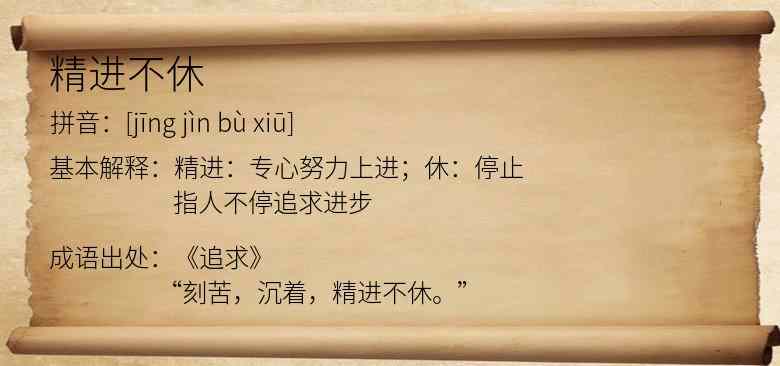 精进不休
拼音：[jīng jìn bù xiū]
基本解释：精进：专心努力上进；休：停止
指人不停追求进步
成语出处：《追求》
“刻苦，沉着，精进不休。”